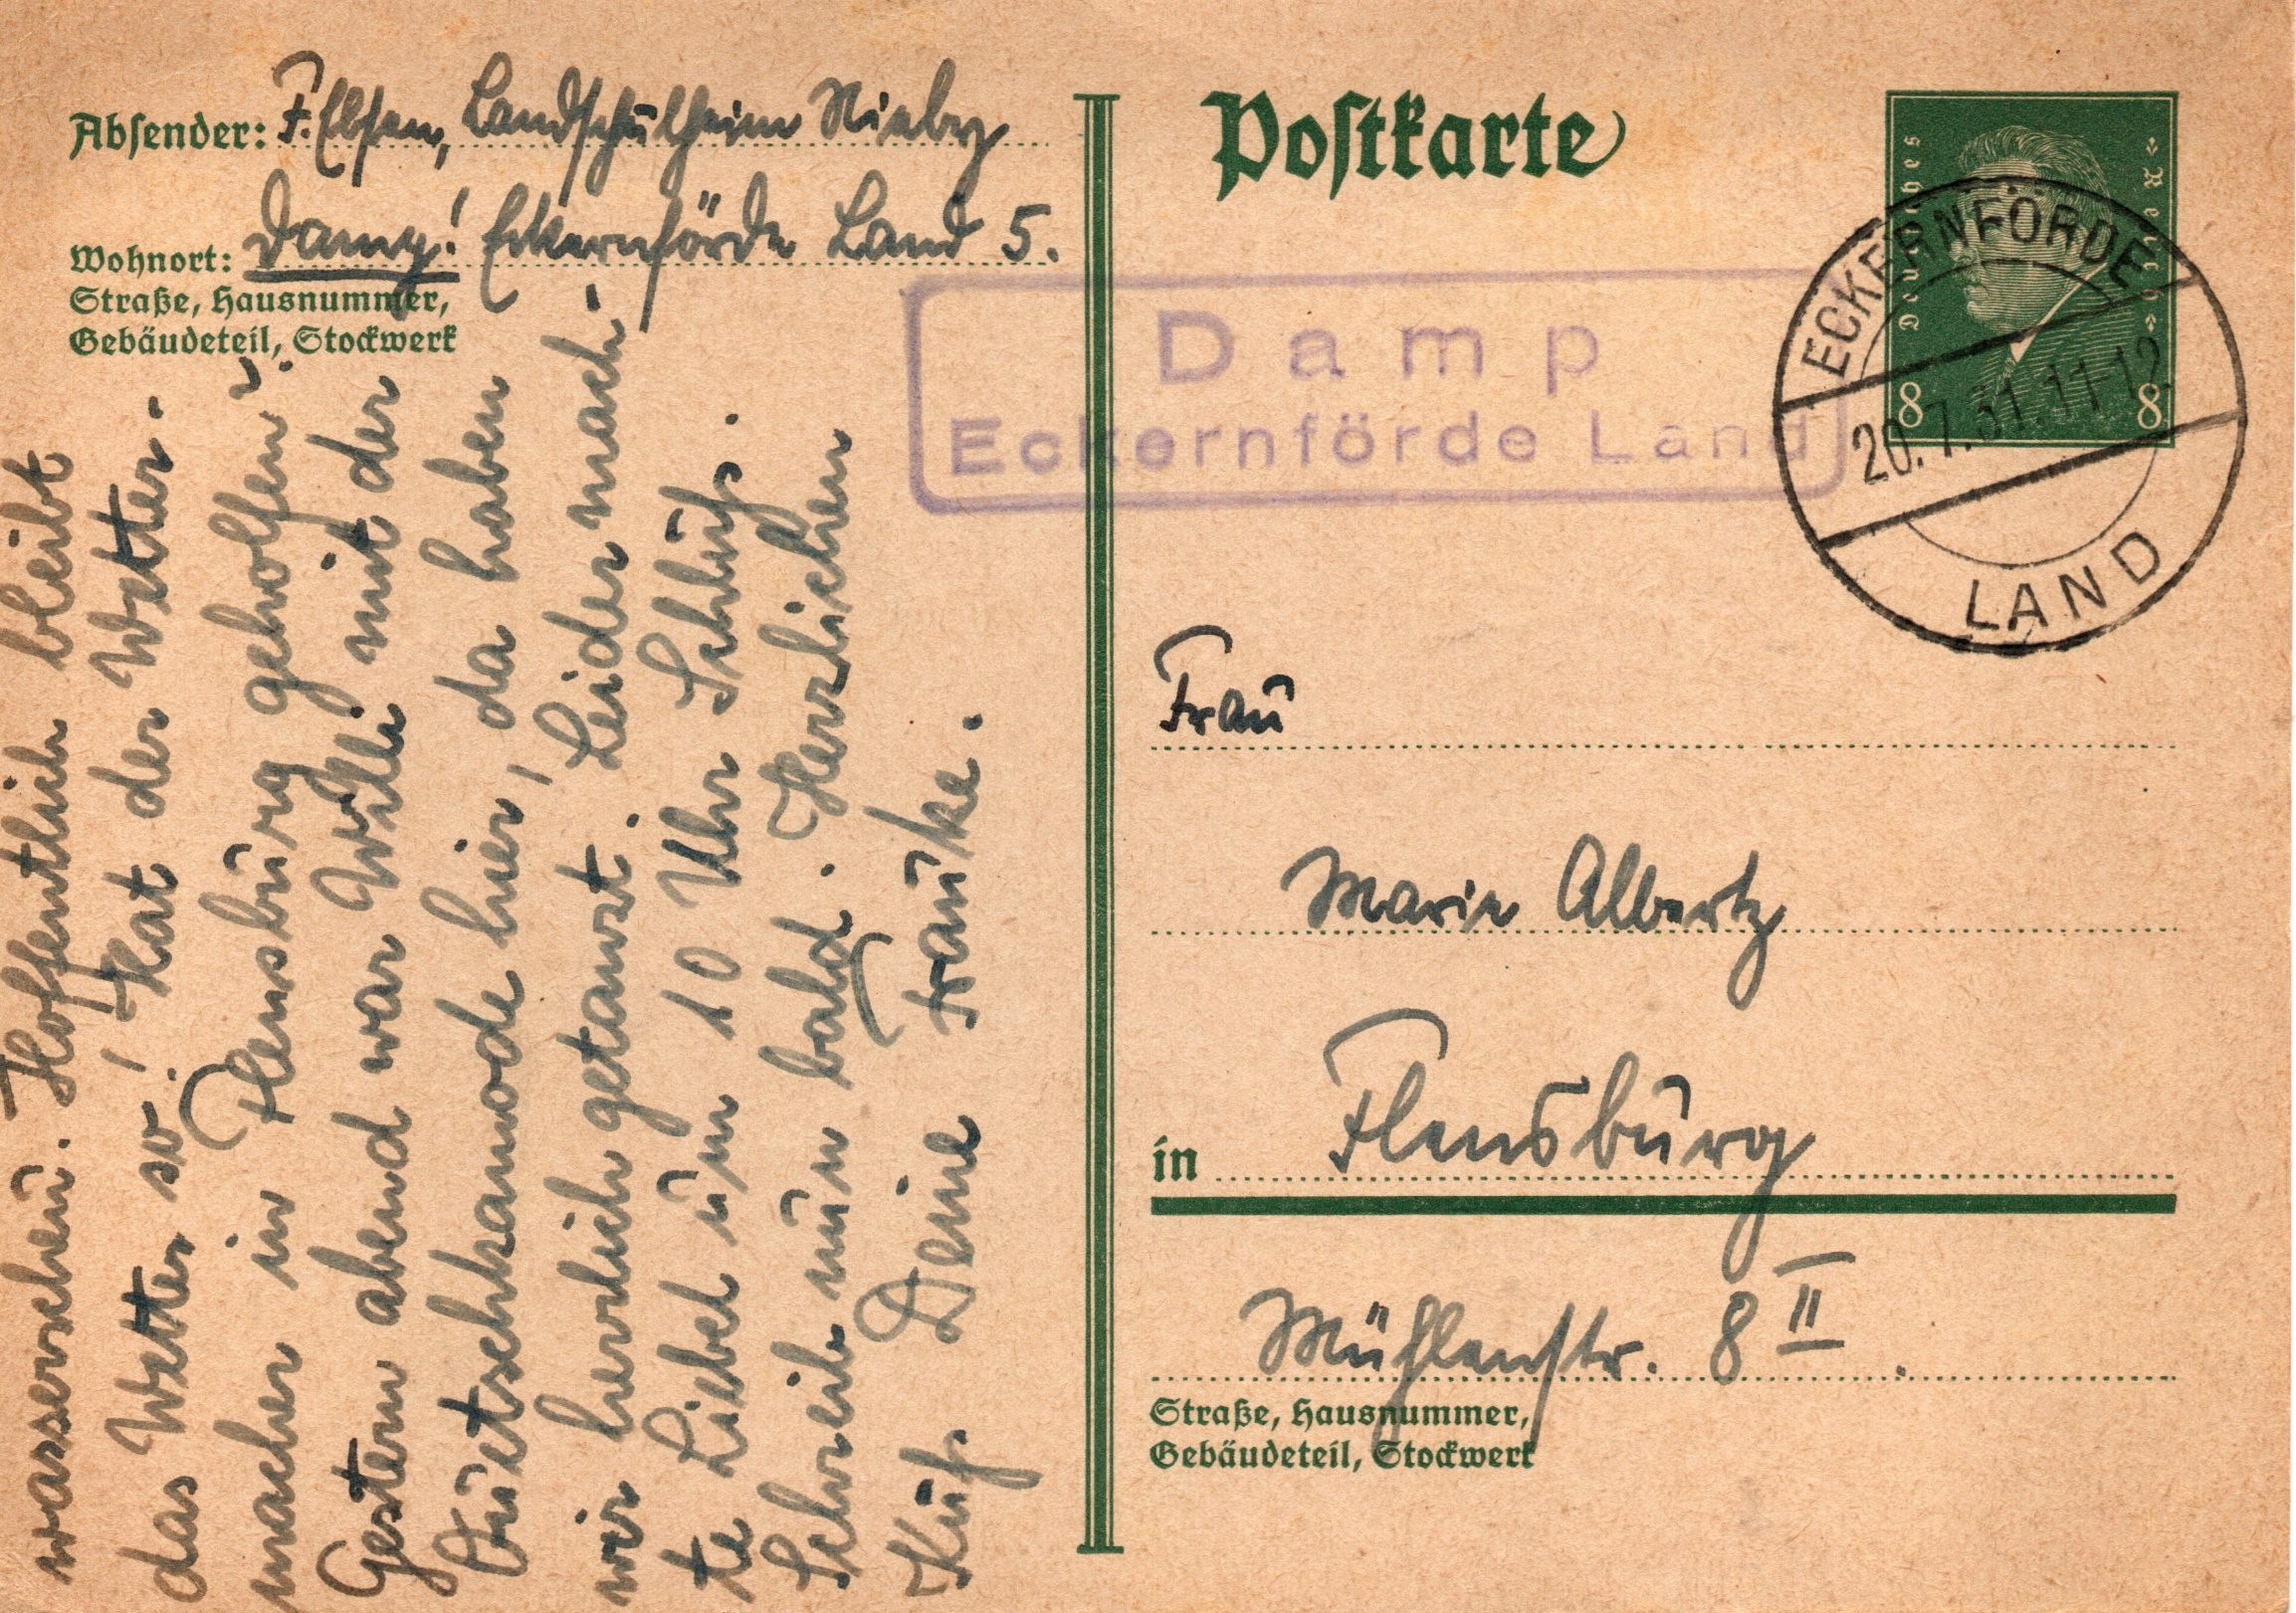 Absender: F. Ebsen, Landschulheim Nieby
Wohnort: Damp! Eckernförde Land 5.
Straße, Hausnummer,
Gebäudeteil, Stockwerk
Postkarte
Deutsches
»Reich«
8 8
ECKERNFÖRDE
20.7.31.11-12
LAND
Damp
Eckernförde Land
Frau
Marie Albertz
in Flensburg
Mühlenstr. 8 II.
Straße, Hausnummer,
Gebäudeteil, Stockwerk
wasserscheu. Hoffentlich bleibt
das Wetter so! Hat der Wetter-
macher in Flensburg geholfen?
Gestern abend war Willi mit der
Quetschkamode hier, da haben
wir herrlich getanzt. Leider mach-
te Liebel um 10 Uhr Schluß.
Schreib nun bald. Herzlichen
Kuß Deine Frauke.